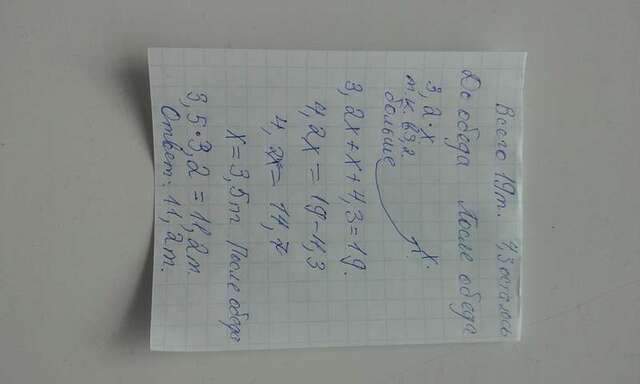 Всего 19т. 4,3 осталось
До обеда После обеда
3,2·х х.
т.к. в 3,2.
больше
3,2х+х+4,3=19.
4,2х = 19-4,3
4,2х = 14,7
х = 3,5т После обеда
3,5·3,2 = 11,2т.
Ответ: 11,2т.